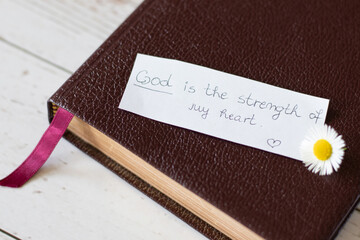 God is the strength of
my heart ♡